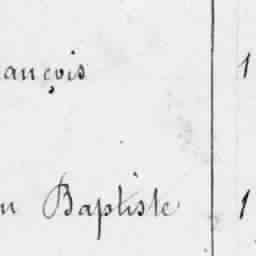 ançois 1
n Baptiste 1